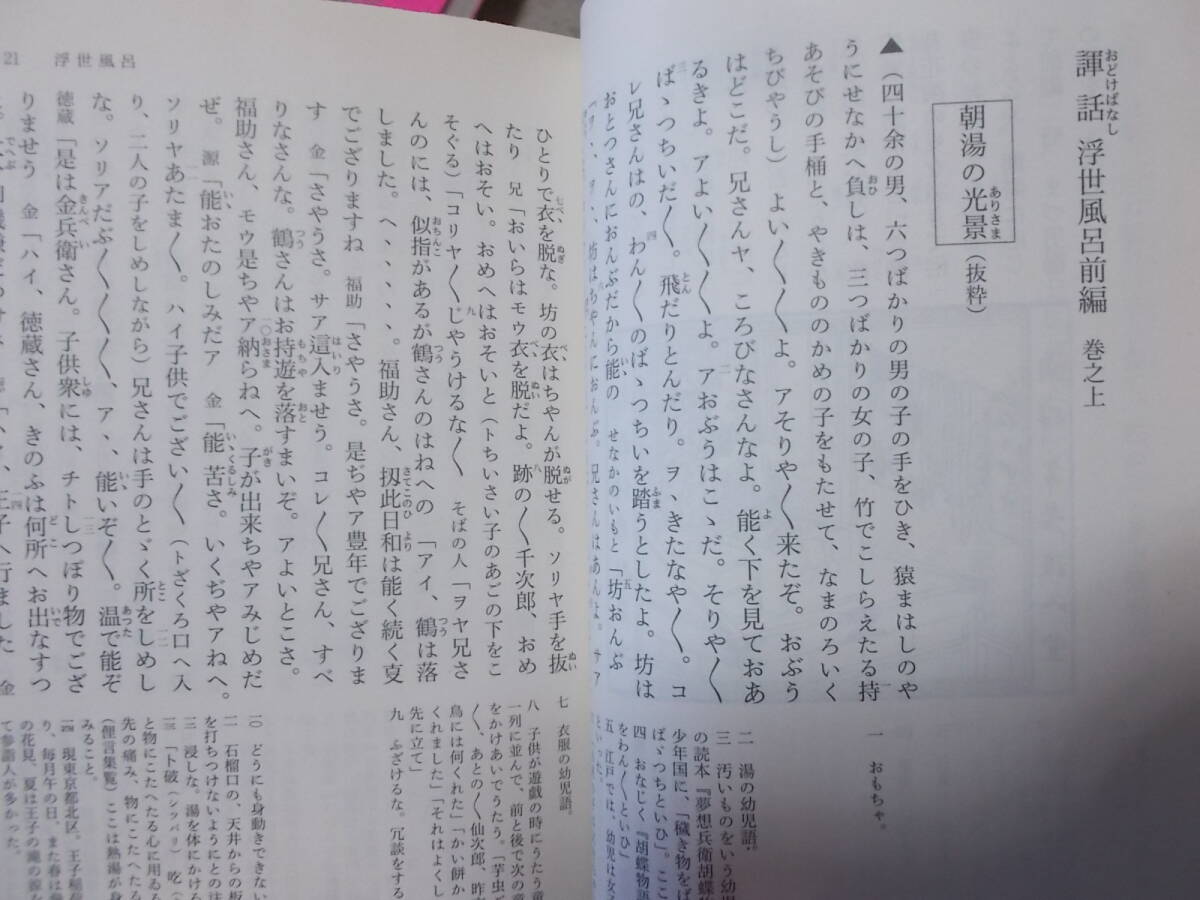 諢話 浮世風呂前編 巻之上
朝湯の光景（抜粋）
▲（四十余の男、六つばかりの男の子の手をひき、猿まはしのや
うにせなかへ負しは、三つばかりの女の子、竹でこしらえたる持
あそびの手桶と、やきもののかめの子をもたせて、なまのろいく
ちびやうし）よい〳〵〳〵よ。アそりや〳〵来たぞ。おぶう
はどこだ。兄さんヤ、ころびなさんなよ。能く下を見ておあ
るきよ。アよい〳〵よ。アおぶうはこゝだ。そりや〳〵
ば、つちいだ〳〵。飛だりとんだり。ヲヽきたなや〳〵。コ
レ兄さんはの、わん〳〵のばゝつちいを踏うとしたよ。坊は
おとつさんにおんぶだから能の せなかのいもと「坊おんぶ
一 おもちゃ。
二 湯の幼児語。
三 汚いものをいう幼
の読本『夢想兵衛胡蝶物
少年国に、「穢き物をば
ばゞつちといひ」。ここ
四 おなじく『胡蝶物語
をわん〳〵といひ」
五 江戸では、幼児は女子
21 浮世風呂
ひとりで衣を脱な。坊の衣はちやんが脱せる。ソリヤ手を抜
たり 兄「おいらはモウ衣を脱だよ。跡の〳〵千次郎、おめ
へはおそい。おめへはおそいと（トちいさい子のあごの下をこ
そぐる）「コリヤ〳〵じやうけるな〳〵 そばの人「ヲヤ兄さ
んのには、似指があるが鶴さんのはねへの 「アイ、鶴は落
しました。ヘヽヽヽヽ。福助さん、扨此日和は能く続く㕝
でござりますね 福助「さやうさ。是ぢやア豊年でござりま
す 金「さやうさ。サア這入ませう。コレ〳〵兄さん、すべ
りなさんな。鶴さんはお持遊を落すまいぞ。アよいとこさ。
福助さん、モウ是ちやア納らねへ。子が出来ちやアみじめだ
ぜ。源「能おたのしみだア 金「能苦さ。いくぢやアねへ。
ソリヤあたま〳〵。ハイ子供でござい〳〵（トざくろ口へ入
り、二人の子をしめしながら）兄さんは手のとゞく所をしめし
な。ソリアだぶ〳〵〳〵〳〵、アヽ能いぞ〳〵。温で能ぞ
徳蔵「是は金兵衛さん。子供衆には、チトしつぽり物でござ
りませう 金「ハイ、徳蔵さん、きのふは何所へお出なすつ
七 衣服の幼児語。
八 子供が遊戯の時にうたう童
一列に並んで、前と後で次の童
をかけあいでうたう。「芋虫ご
〳〵、あとの〳〵仙次郎、昨夜
鳥には何くれた」「かい餅か
くれました」「それはよくし
先に立て」
九 ふざけるな。冗談をする
一〇 どうにも身動きできない
一一 石榴口の、天井からの板
を打ちつけないようにとの注
一二 浸しな。湯を体にかける
一三 「卜破（シッパリ） 吃（
と物にこたへたる心に用ゐる
先の痛み、物にこたへたる
（俚言集覧）ここは熱湯が身
みること。
一四 現東京都北区。王子稲荷
り、毎月午の日、また春は
の花見、夏は王子の滝の
て参詣人が多かった。